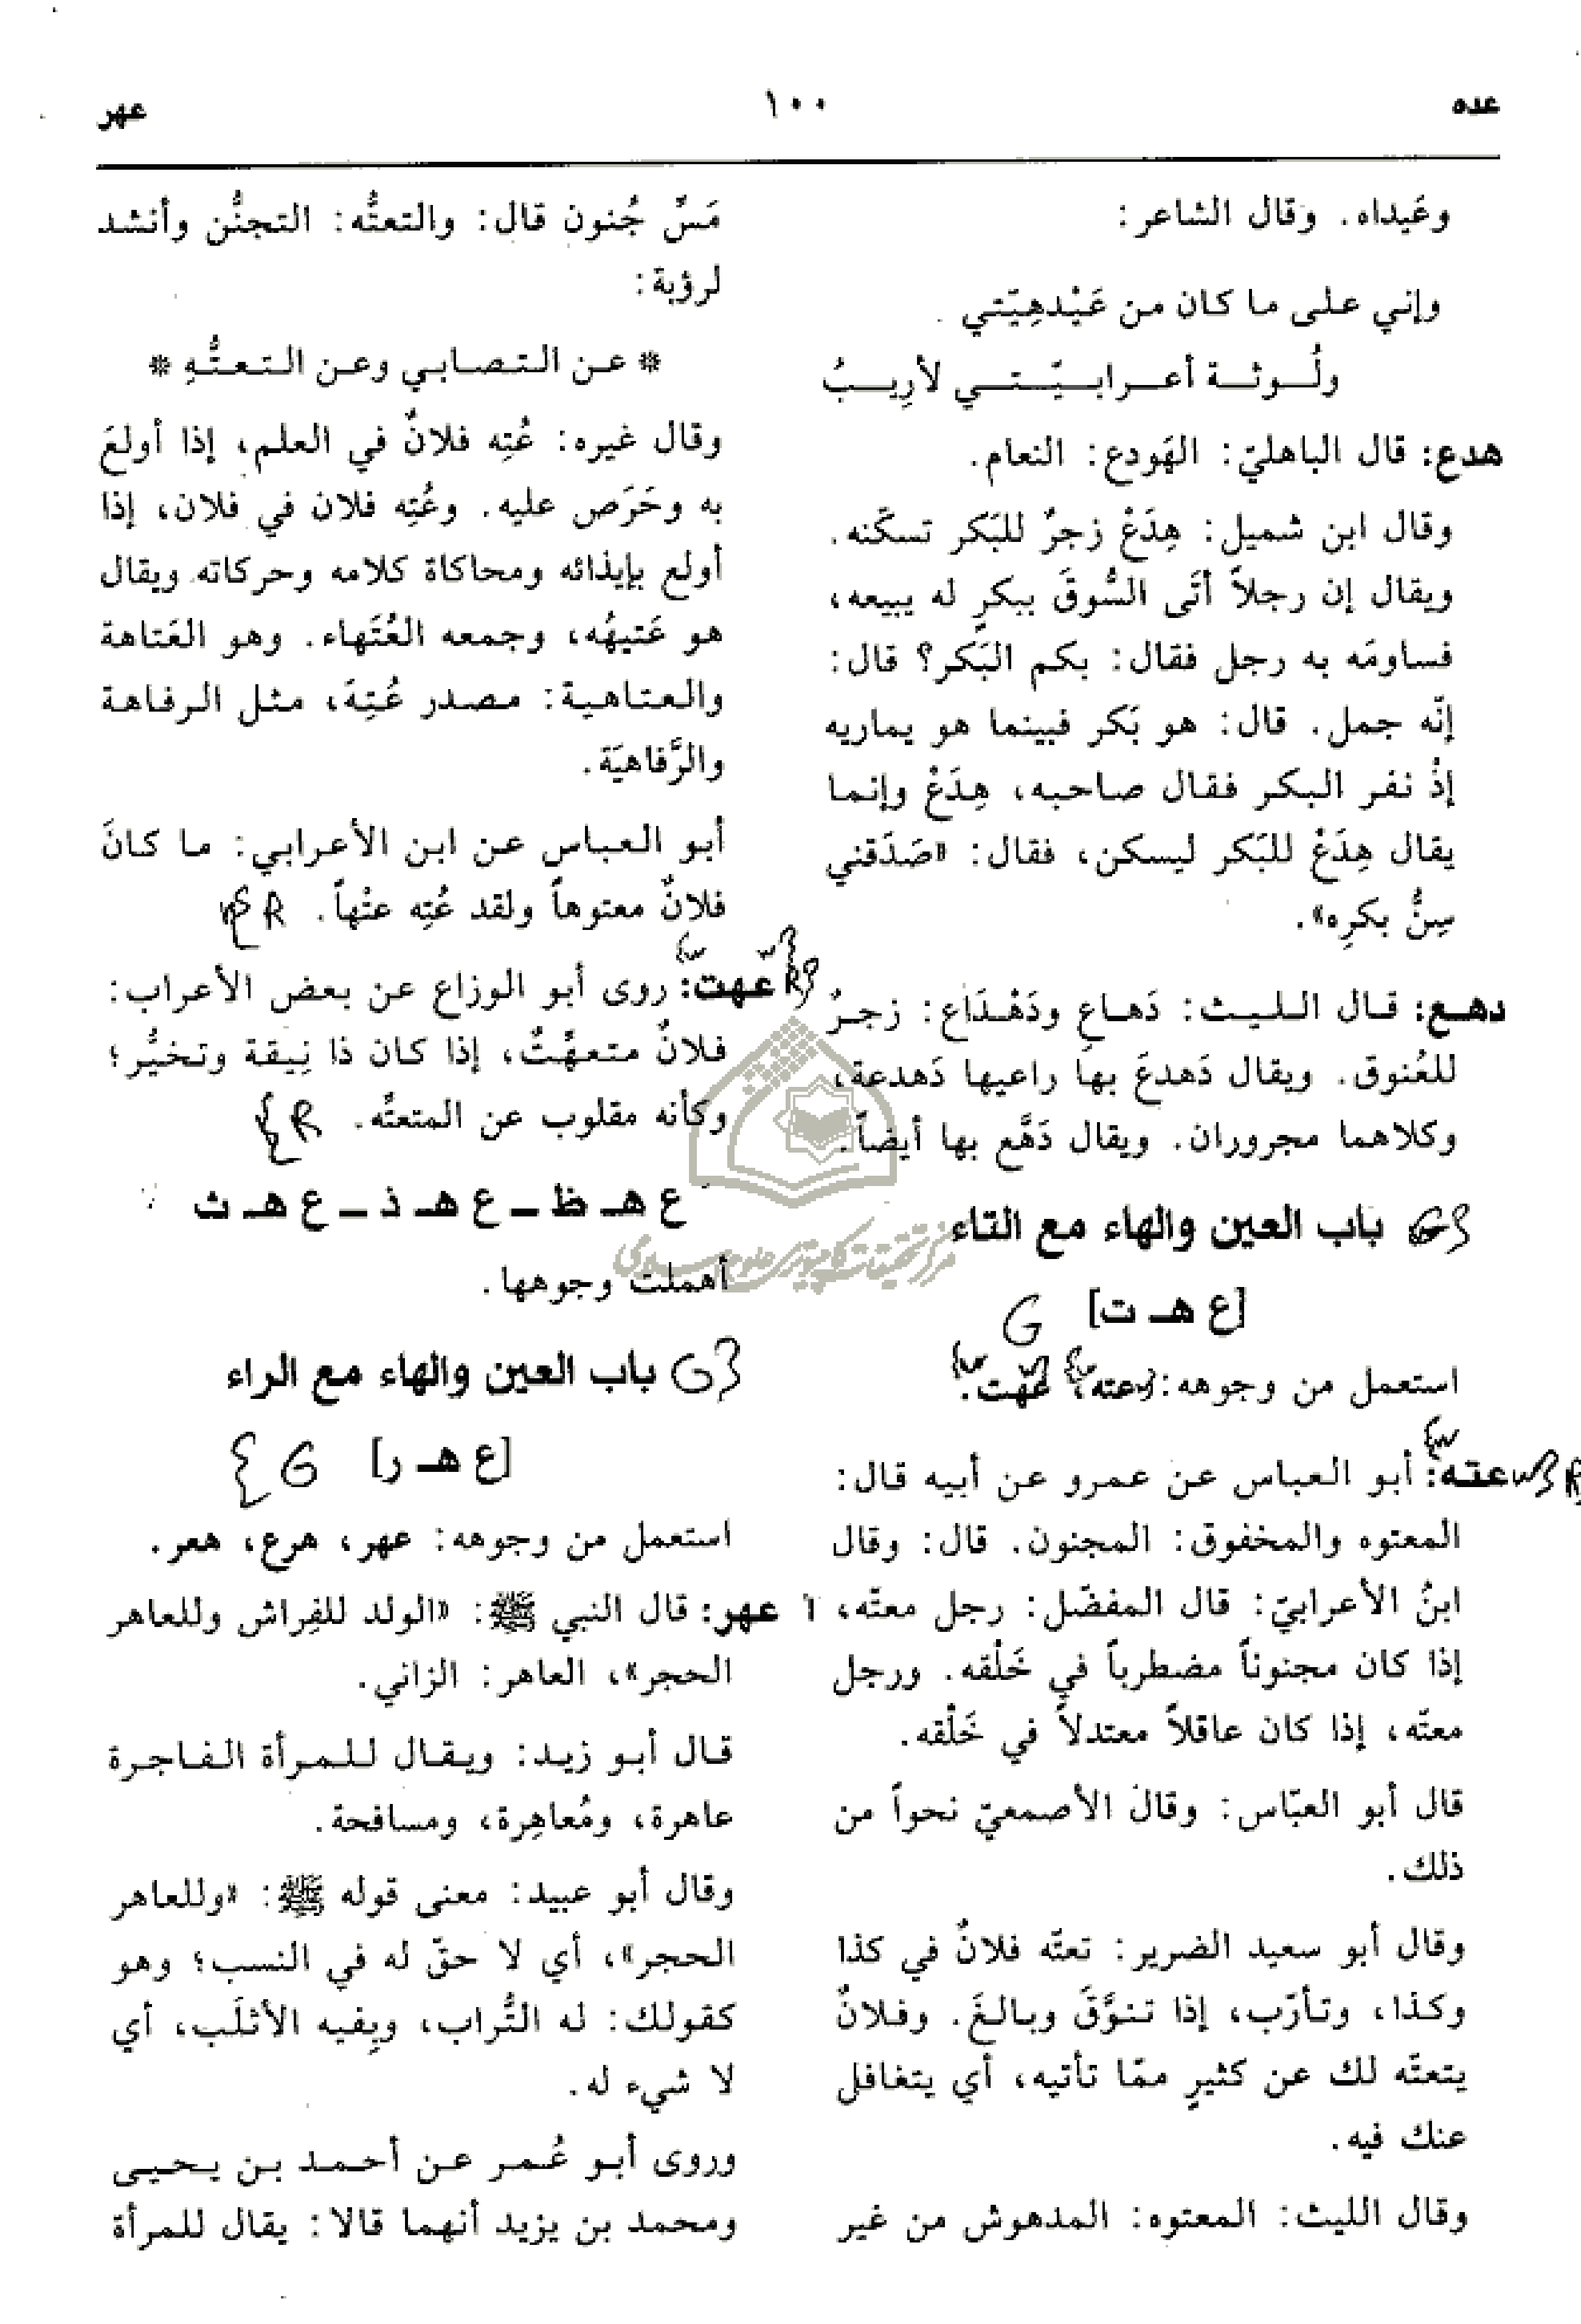 عده
١٠٠
عهر
وعَيداه. وقال الشاعر:
وإني على ما كان من عَيْدهِيّتي
ولُـوثـة أعـرابـيّـتـي لأرِيـبُ
هدع: قال الباهليّ: الهَودع: النعام.
وقال ابن شميل: هِدَعْ زجرٌ للبَكر تسكّنه.
ويقال إن رجلاً أتَى السُّوقَ ببكرٍ له يبيعه،
فساومَه به رجل فقال: بكم البَكر؟ قال:
إنّه جمل. قال: هو بَكر فبينما هو يماريه
إذْ نفر البكر فقال صاحبه، هِدَعْ وإنما
يقال هِدَعْ للبَكر ليسكن، فقال: «صَدَقني
سِنُّ بكرِه».
دهـع: قـال الـلـيـث: دَهـاعِ ودَهْـدَاع: زجـرٌ
للعُنوق. ويقال دَهدعَ بها راعيها دَهدعة،
وكلاهما مجروران. ويقال دَهَّع بها أيضاً.
باب العين والهاء مع التاء G
[ع هـ ت] G
استعمل من وجوهه: عته، عهت.
عته: أبو العباس عن عمرو عن أبيه قال: R
المعتوه والمخفوق: المجنون. قال: وقال
ابنُ الأعرابيّ: قال المفضّل: رجل معتّه،
إذا كان مجنوناً مضطرباً في خَلْقه. ورجل
معتّه، إذا كان عاقلاً معتدلاً في خَلْقه.
قال أبو العبّاس: وقال الأصمعيّ نحواً من
ذلك.
وقال أبو سعيد الضرير: تعتّه فلانٌ في كذا
وكذا، وتأرّب، إذا تنوَّقَ وبالغَ. وفلانٌ
يتعتّه لك عن كثيرٍ ممّا تأتيه، أي يتغافل
عنك فيه.
وقال الليث: المعتوه: المدهوش من غير
مَسِّ جُنون قال: والتعتُّه: التجنُّن وأنشد
لرؤبة:
* عـن الـتـصـابـي وعـن الـتـعـتُّـهِ *
وقال غيره: عُتِه فلانٌ في العلم، إذا أولعَ
به وحَرَص عليه. وعُتِه فلان في فلان، إذا
أولع بإيذائه ومحاكاة كلامه وحركاته ويقال
هو عَتيهُه، وجمعه العُتَهاء. وهو العَتاهة
والعتاهية: مصدر عُتِهَ، مثل الرفاهة
والرَّفاهيَة.
أبو العباس عن ابن الأعرابي: ما كانَ
فلانٌ معتوهاً ولقد عُتِه عتْهاً. R
عهت: روى أبو الوزاع عن بعض الأعراب: R
فلانٌ متعهِّتٌ، إذا كان ذا نِيقة وتخيُّر؛
وكأنه مقلوب عن المتعتِّه. R
ع هـ ظ ــ ع هـ ذ ــ ع هـ ث
أهملت وجوهها.
باب العين والهاء مع الراء G
[ع هـ ر] G
استعمل من وجوهه: عهر، هرع، هعر.
عهر: قال النبي ﷺ: «الولد للفِراش وللعاهر
الحجر»، العاهر: الزاني.
قال أبو زيد: ويقال للمرأة الفاجرة
عاهرة، ومُعاهِرة، ومسافحة.
وقال أبو عبيد: معنى قوله ﷺ: «وللعاهر
الحجر»، أي لا حقّ له في النسب؛ وهو
كقولك: له التُّراب، وبِفيه الأثلَب، أي
لا شيء له.
وروى أبو عُمر عن أحمد بن يحيى
ومحمد بن يزيد أنهما قالا: يقال للمرأة
مركز تحقيقات كامپيوترى علوم اسلامى